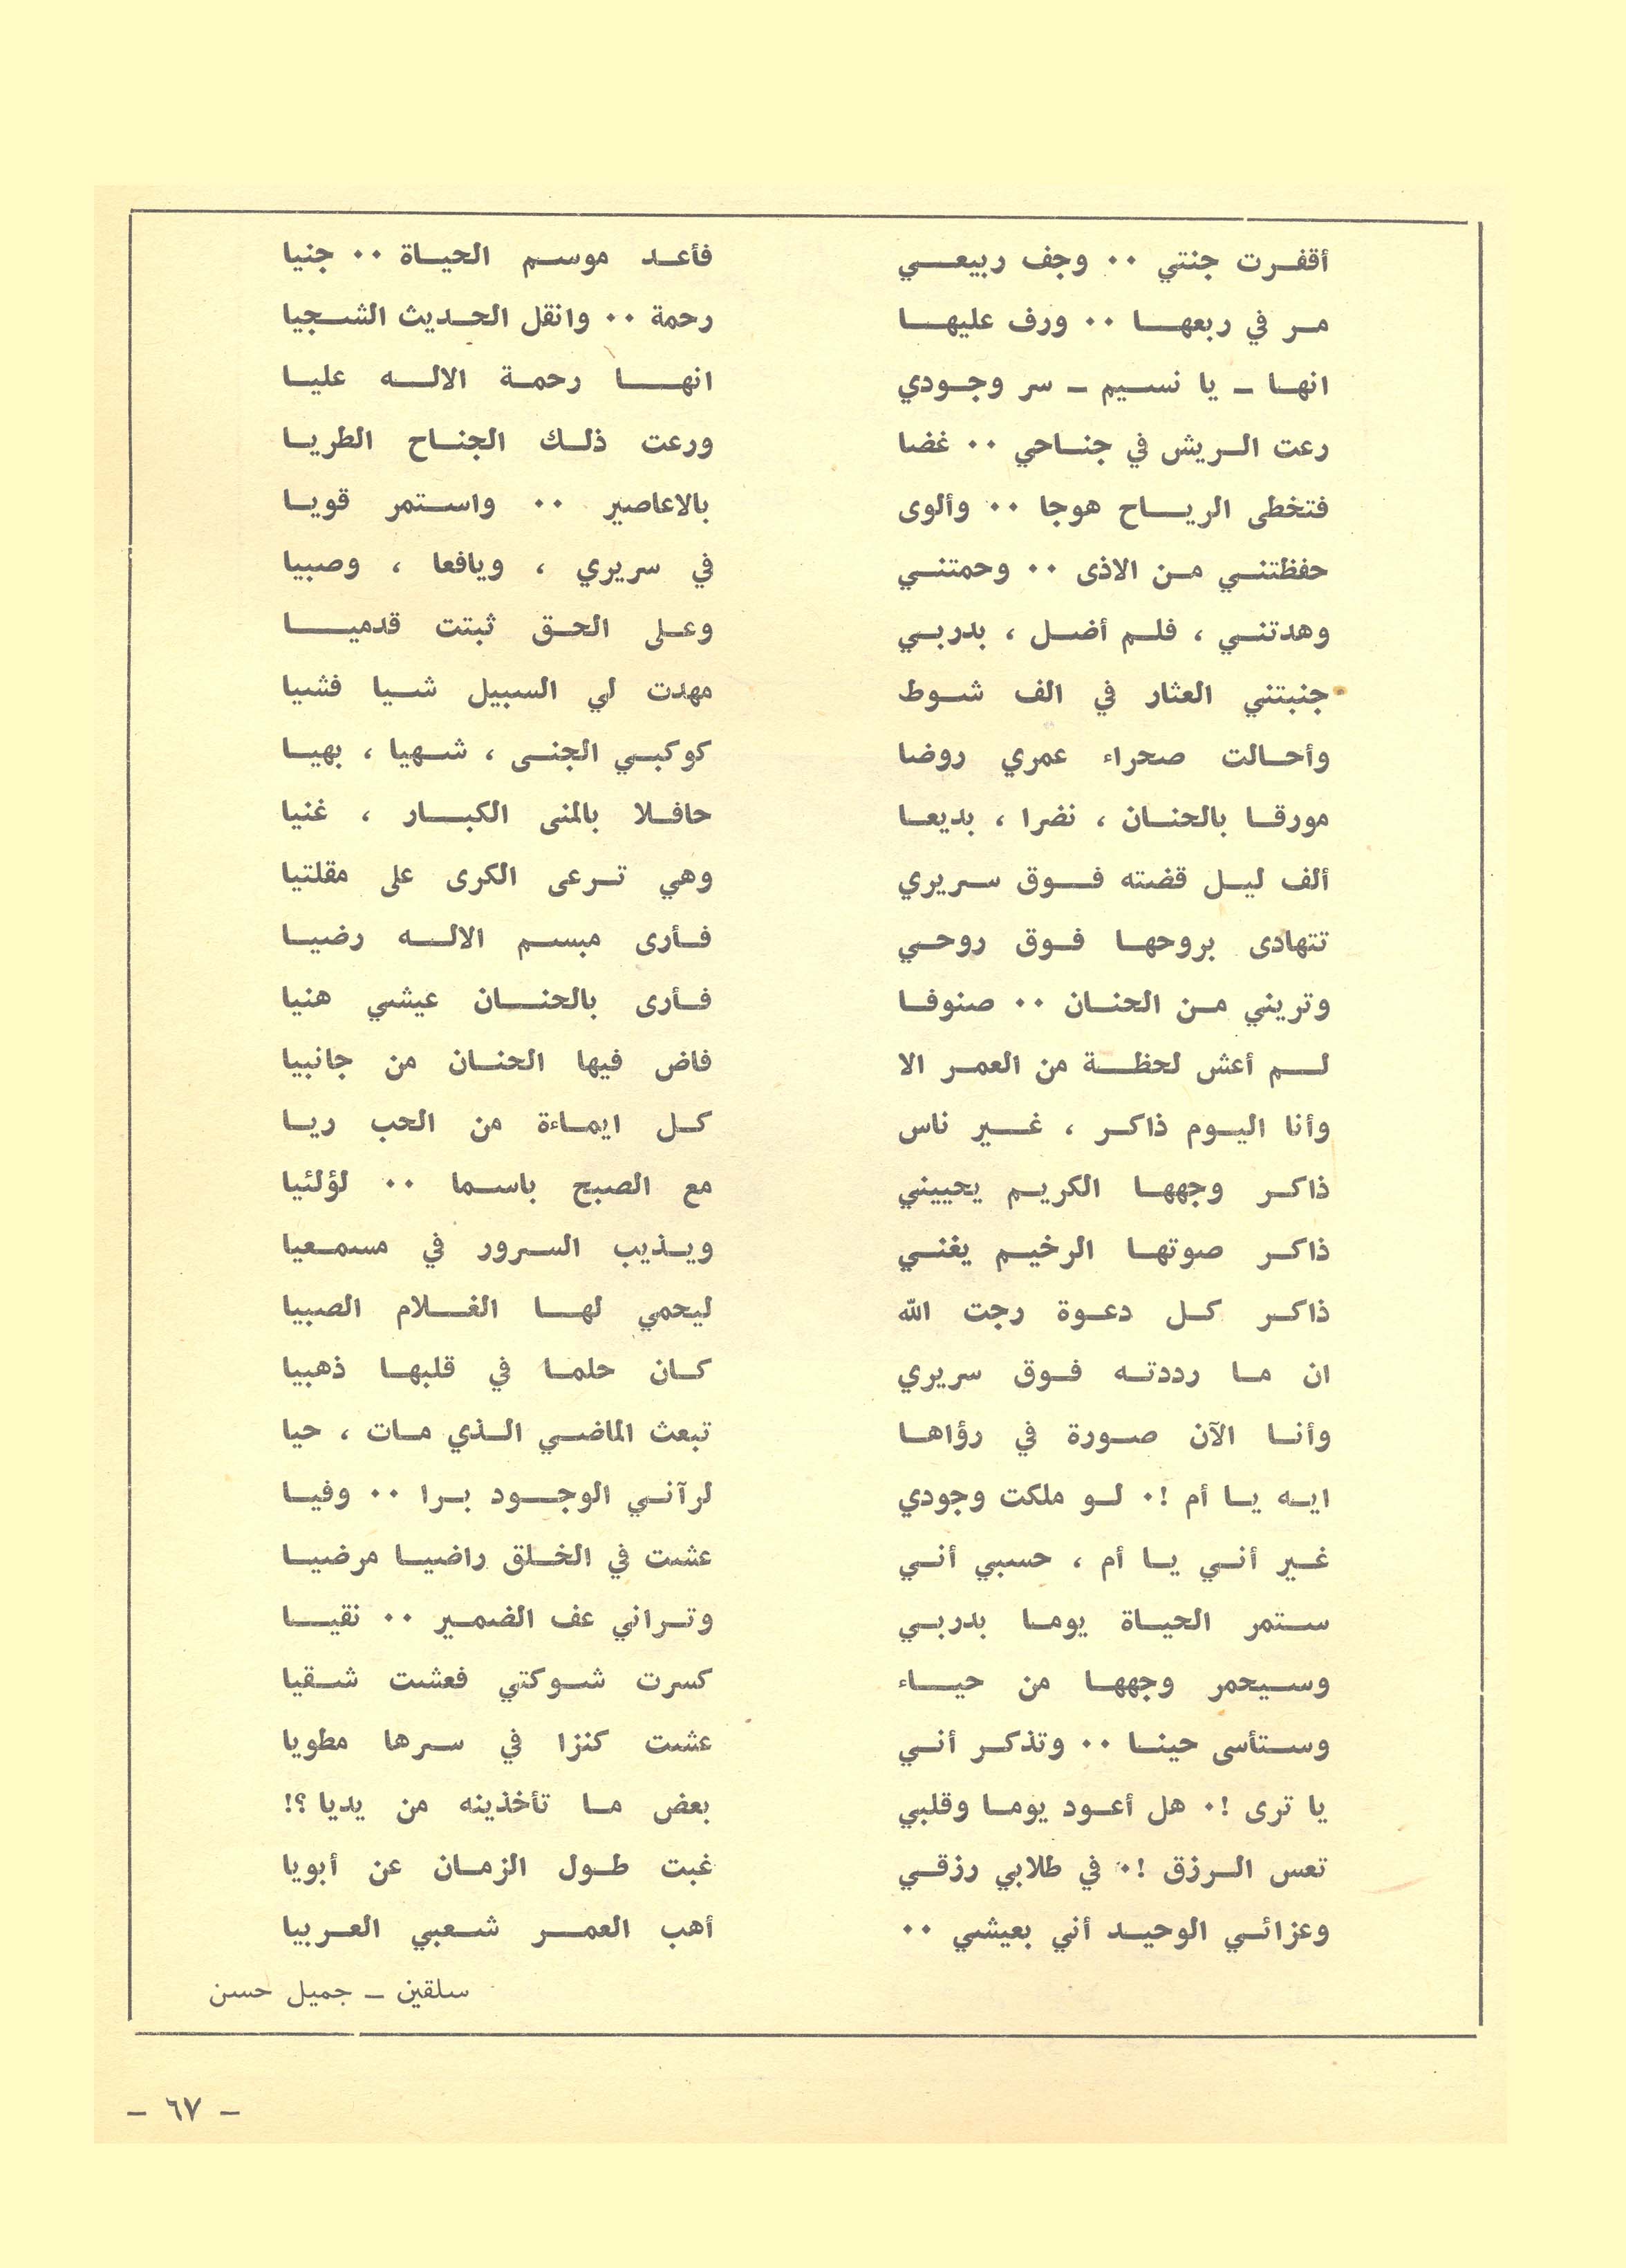 أقفرت جنتي ٠٠ وجف ربيعي فأعد موسم الحياة ٠٠ جنيا
مر في ربعها ٠٠ ورف عليها رحمة ٠٠ وانقل الحديث الشجيا
انها ـ يا نسيم ـ سر وجودي انها رحمة الاله عليا
رعت الريش في جناحي ٠٠ غضا ورعت ذلك الجناح الطريا
فتخطى الرياح هوجا ٠٠ وألوى بالاعاصير ٠٠ واستمر قويا
حفظتني من الاذى ٠٠ وحمتني في سريري ، ويافعا ، وصبيا
وهدتني ، فلم أضل ، بدربي وعلى الحق ثبتت قدميا
جنبتني العثار في الف شوط مهدت لي السبيل شيا فشيا
وأحالت صحراء عمري روضا كوكبي الجنى ، شهيا ، بهيا
مورقا بالحنان ، نضرا ، بديعا حافلا بالمنى الكبار ، غنيا
ألف ليل قضته فوق سريري وهي ترعى الكرى على مقلتيا
تتهادى بروحها فوق روحي فأرى مبسم الاله رضيا
وتريني من الحنان ٠٠ صنوفا فأرى بالحنان عيشي هنيا
لم أعش لحظة من العمر الا فاض فيها الحنان من جانبيا
وأنا اليوم ذاكر ، غير ناس كل ايماءة من الحب ريا
ذاكر وجهها الكريم يحييني مع الصبح باسما ٠٠ لؤلئيا
ذاكر صوتها الرخيم يغني ويذيب السرور في مسمعيا
ذاكر كل دعوة رجت الله ليحمي لها الغلام الصبيا
ان ما رددته فوق سريري كان حلما في قلبها ذهبيا
وأنا الآن صورة في رؤاها تبعث الماضي الذي مات ، حيا
ايه يا أم !٠ لو ملكت وجودي لرآني الوجود برا ٠٠ وفيا
غير أني يا أم ، حسبي أني عشت في الخلق راضيا مرضيا
ستمر الحياة يوما بدربي وتراني عف الضمير ٠٠ نقيا
وسيحمر وجهها من حياء كسرت شوكتي فعشت شقيا
وستأسى حينا ٠٠ وتذكر أني عشت كنزا في سرها مطويا
يا ترى !٠ هل أعود يوما وقلبي بعض ما تأخذينه من يديا ؟!
تعس الرزق !٠ في طلابي رزقي غبت طول الزمان عن أبويا
وعزائي الوحيد أني بعيشي ٠٠ أهب العمر شعبي العربيا
سلقين ـ جميل حسن
ـ ٦٧ ـ